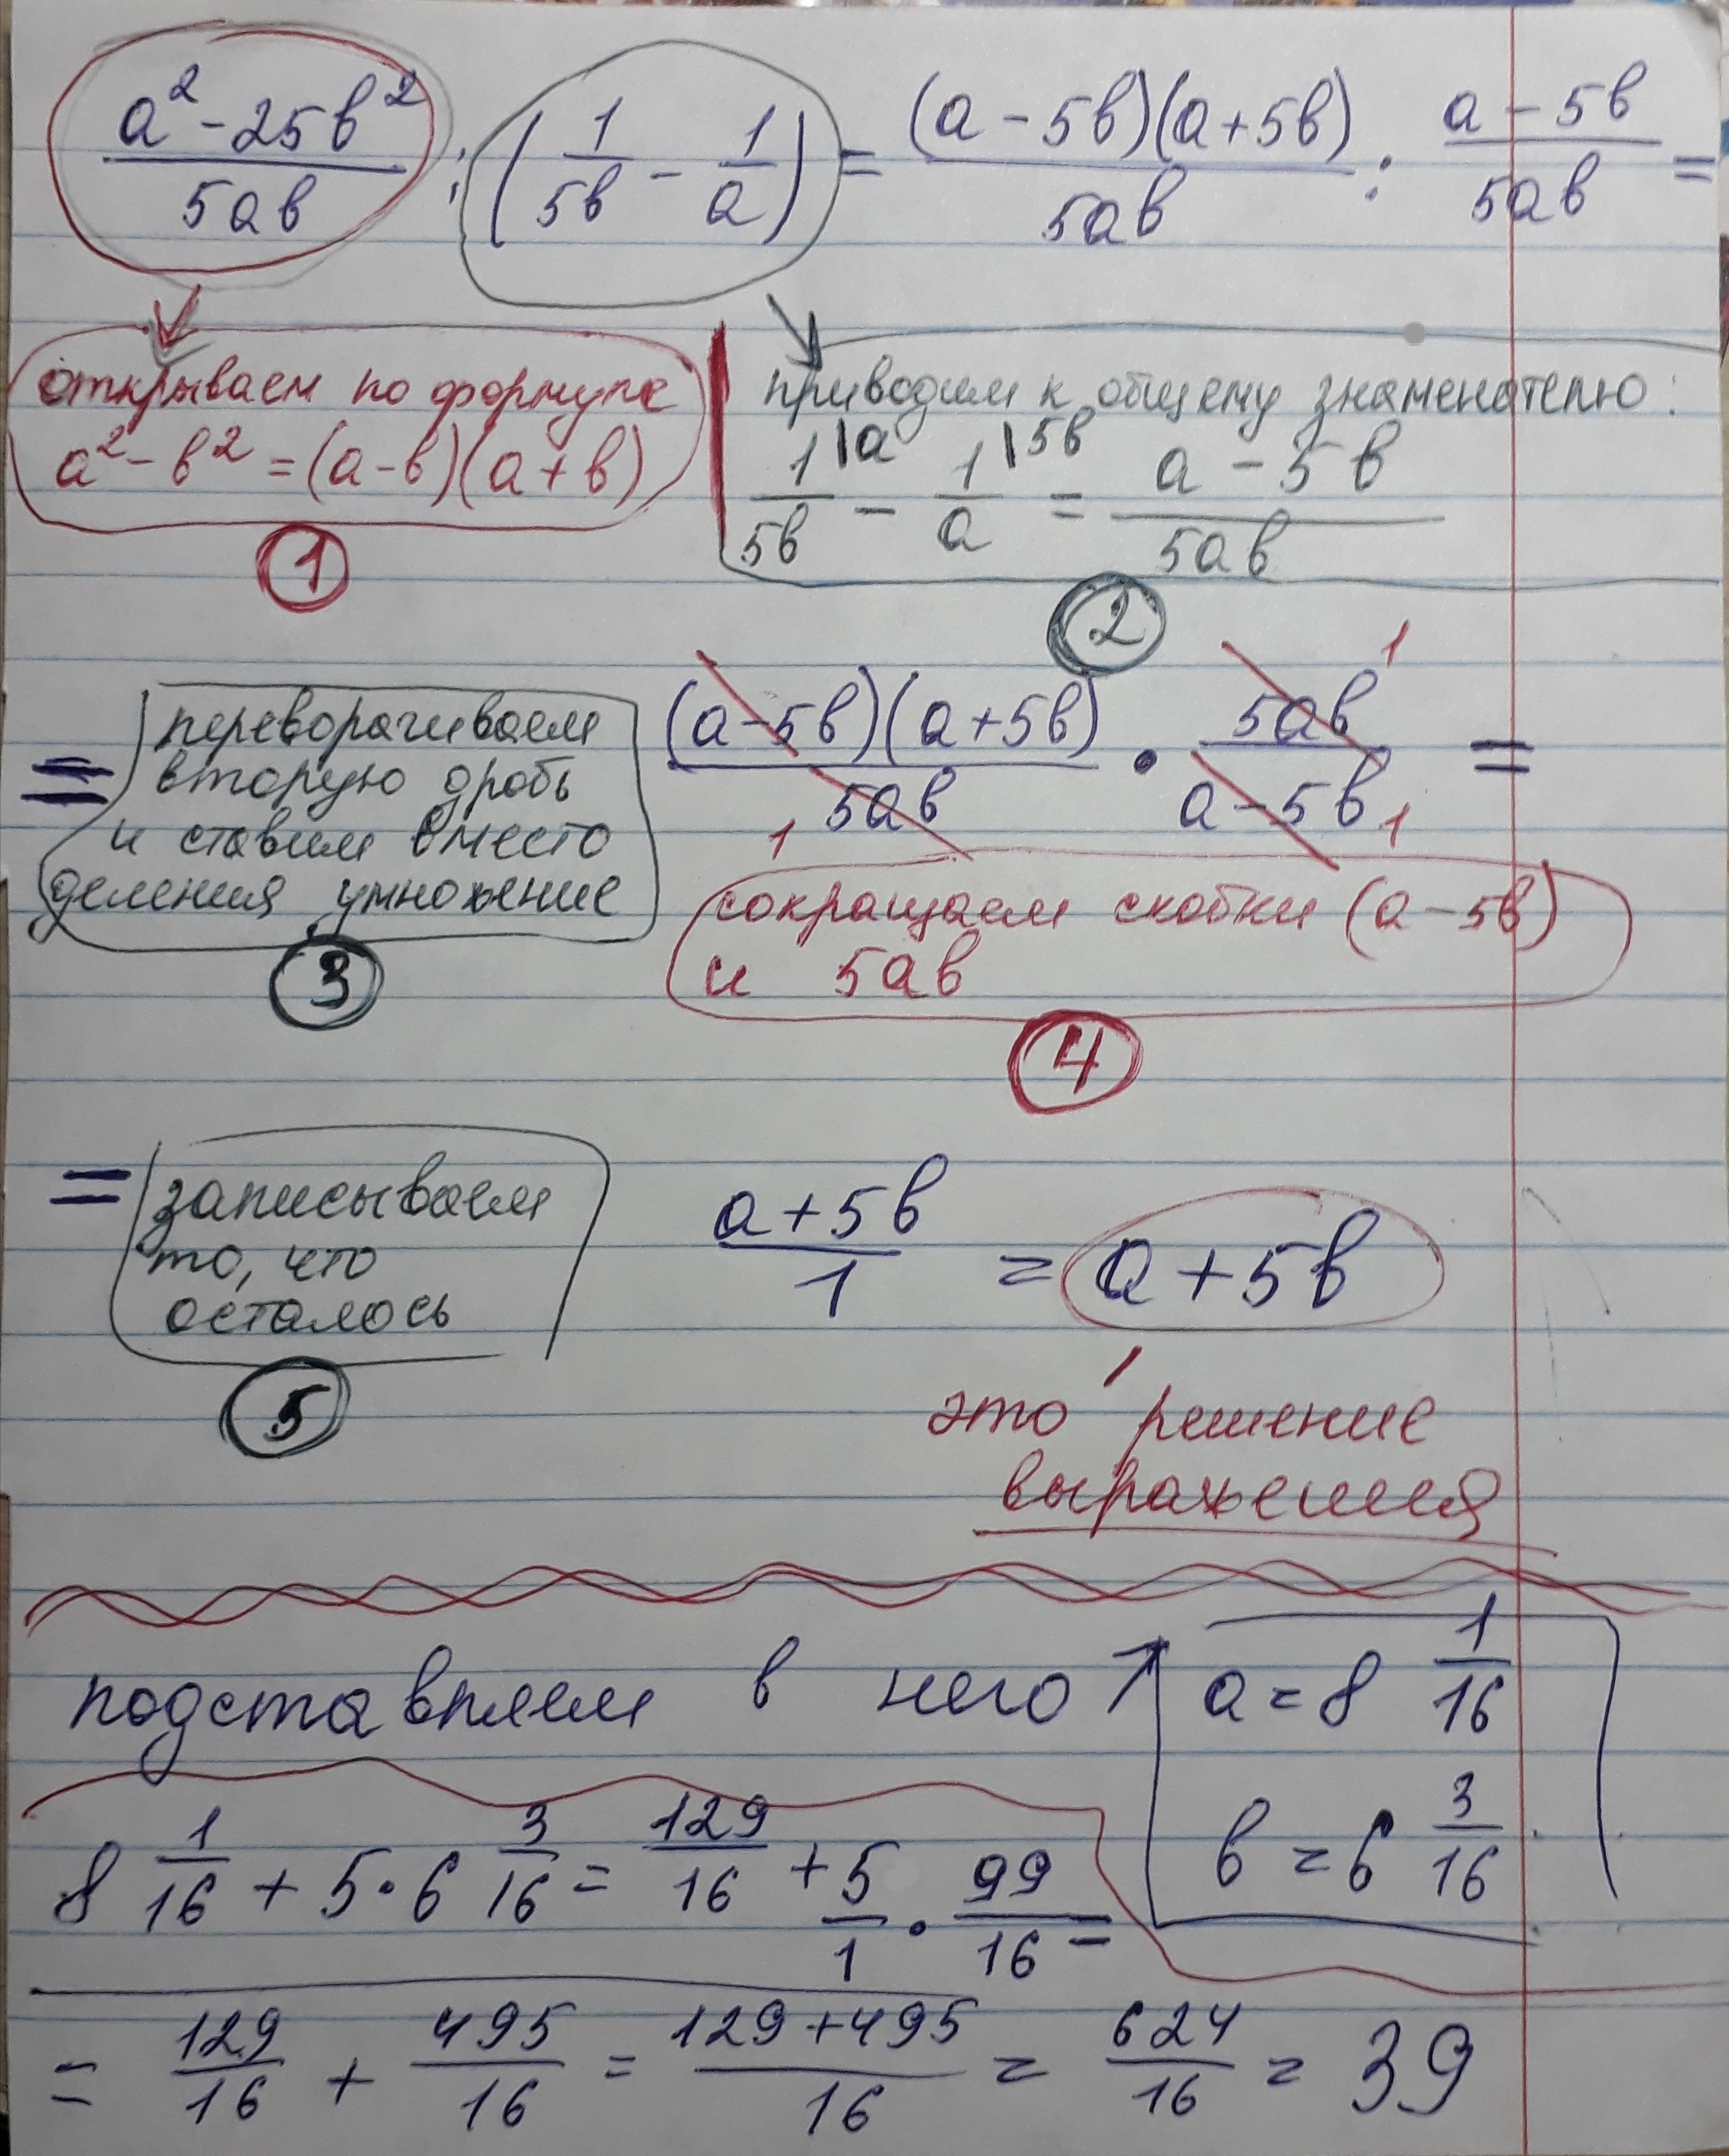 (a² - 25в²)/(5ав) : (1/(5в) - 1/а) = ((а - 5в)(а + 5в))/(5ав) : (а - 5в)/(5ав) =
открываем по формуле
а² - в² = (а - в)(а + в)
1
приводим к общему знаменателю:
1\а/(5в) - 1\5в/а = (а - 5в)/(5ав)
2
=
переворачиваем
вторую дробь
и ставим вместо
деления умножение
3
((а - 5в)(а + 5в))/(5ав) · (5ав)/(а - 5в) =
1
1
1
сокращаем скобки (а - 5в)
и 5ав
4
=
записываем
то, что
осталось
5
(а + 5в)/1 = а + 5в
это решение
выражения
подставляем в него ↑
а = 8 1/16
в = 6 3/16
8 1/16 + 5 · 6 3/16 = 129/16 + 5/1 · 99/16 =
= 129/16 + 495/16 = (129 + 495)/16 = 624/16 = 39